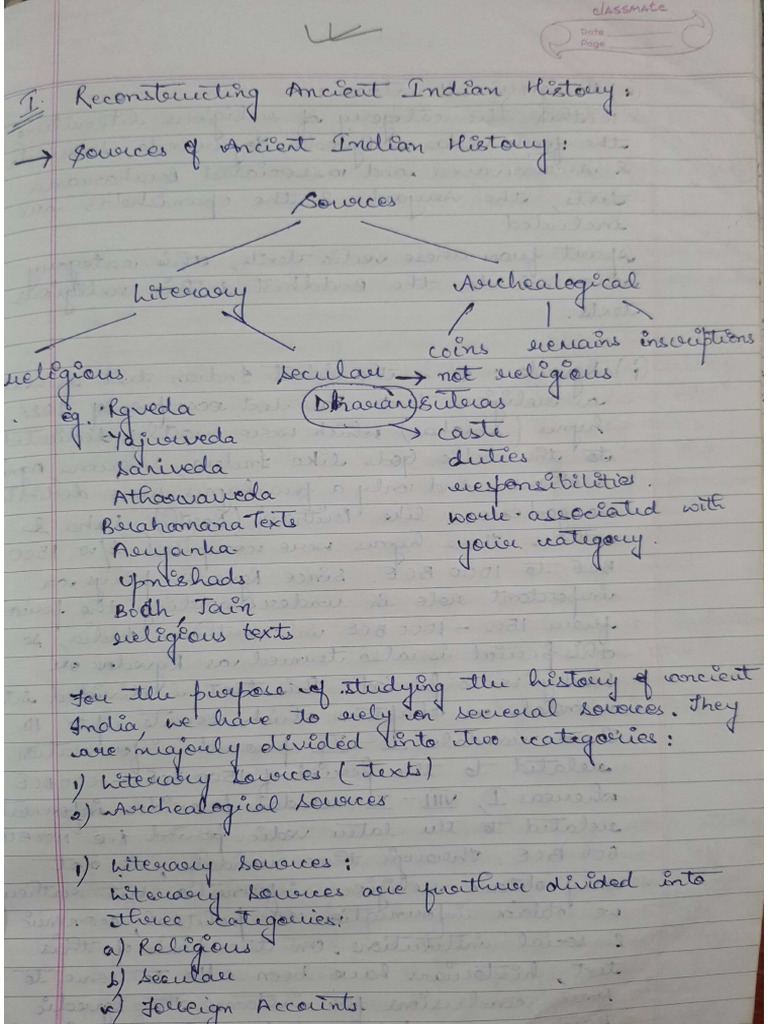 classmate
Date
Page
I. Reconstructing Ancient Indian History:
→ Sources of Ancient Indian History:
Sources
Literary Archealogical
coins remains inscriptions
religious secular → not religious:
eg. Rgveda Dharam Sutras
Yajurveda → caste
Samveda duties
Atharwaveda responsibilities.
Brahamana Texts work associated with
Aryanka your category.
Upnishads
Bodh, Jain
religious texts
For the purpose of studying the history of ancient
India, we have to rely on several sources. They
are majorly divided into two categories:
1) Literary sources (texts)
2) Archealogical sources
1) Literary sources:
Literary sources are further divided into
three categories:
a) Religious
b) Secular
c) Foreign Accounts.